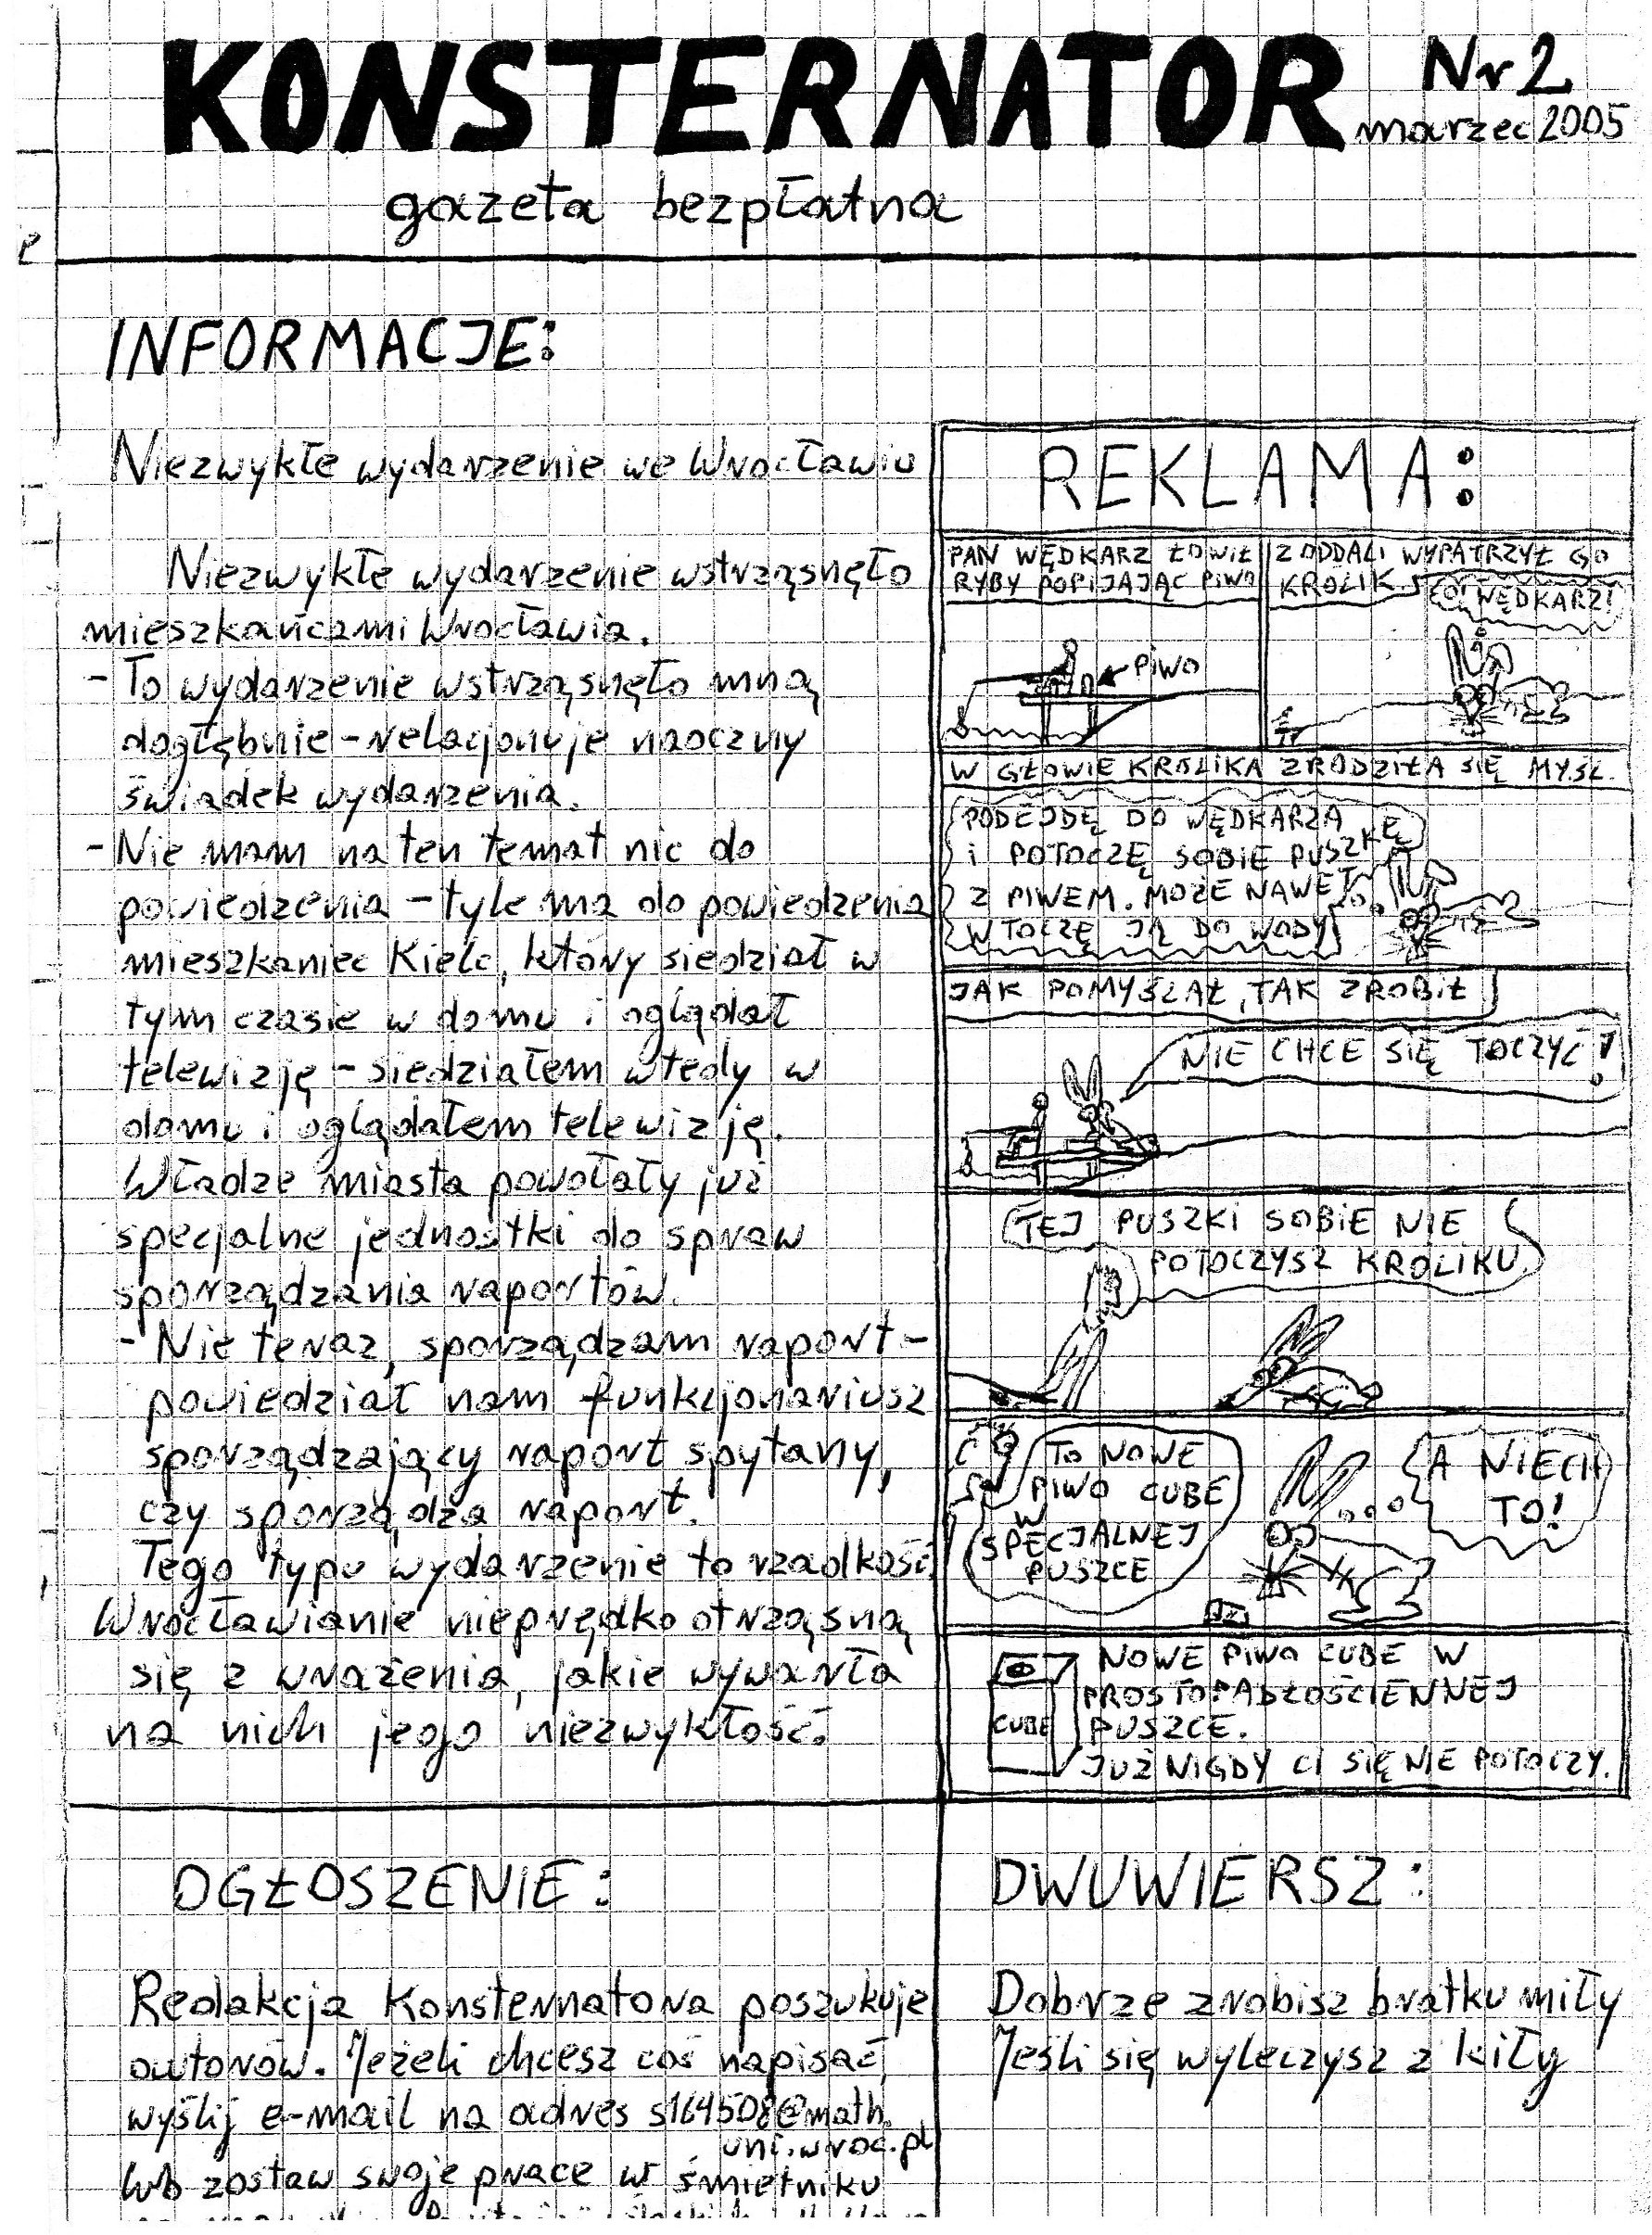 KONSTERNATOR
Nr 2
marzec 2005
gazeta bezpłatna
INFORMACJE:
Niezwykłe wydarzenie we Wrocławiu
Niezwykłe wydarzenie wstrząsnęło
mieszkańcami Wrocławia.
- To wydarzenie wstrząsnęło mną
dogłębnie - relacjonuje naoczny
świadek wydarzenia.
- Nie mam na ten temat nic do
powiedzenia - tyle ma do powiedzenia
mieszkaniec Kielc, który siedział w
tym czasie w domu i oglądał
telewizję - siedziałem wtedy w
domu i oglądałem telewizję.
Władze miasta powołały już
specjalne jednostki do spraw
sporządzania raportów.
- Nie teraz, sporządzam raport -
powiedział nam funkcjonariusz
sporządzający raport spytany,
czy sporządza raport.
Tego typu wydarzenie to rzadkość.
Wrocławianie nieprędko otrząsną
się z wrażenia, jakie wywarła
na nich jego niezwykłość.
REKLAMA:
PAN WĘDKARZ ŁOWIŁ
RYBY POPIJAJĄC PIWO
PIWO
Z ODDALI WYPATRZYŁ GO
KROLIK.
O! WĘDKARZ!
W GŁOWIE KROLIKA ZRODZIŁA SIĘ MYŚL.
PODEJDĘ DO WĘDKARZA
i POTOCZĘ SOBIE PUSZKĘ
Z PIWEM. MOŻE NAWET
WTOCZĘ JĄ DO WODY
JAK POMYŚLAŁ, TAK ZROBIŁ
NIE CHCE SIĘ TOCZYĆ!
TEJ PUSZKI SOBIE NIE
POTOCZYSZ KROLIKU.
TO NOWE
PIWO CUBE
W
SPECJALNEJ
PUSZCE
A NIECH
TO!
CUBE
NOWE PIWO CUBE W
PROSTOPADŁOŚCIENNEJ
PUSZCE.
JUŻ NIGDY CI SIĘ NIE POTOCZY.
OGŁOSZENIE:
Redakcja Konsternatora poszukuje
autorów. Jeżeli chcesz coś napisać,
wyślij e-mail na adres s164508@math.
uni.wroc.pl
lub zostaw swoje prace w śmietniku
DWUWIERSZ:
Dobrze zrobisz bratku miły
Jeśli się wyleczysz z kiły